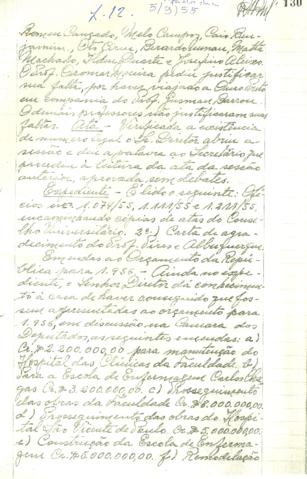 L. 12. 5/9/55
130
Romeu Cançado, Melo Campos, Caio Ben-
jamin, Oto Cirne, Berardo Nunan, Mata
Machado, Fidus Duarte e Josefino Aleixo.
O Prof. Oromar Moreira pediu justificar
sua falta, por haver viajado a
em companhia do Prof. Gusman Barron.
Os demais professores não justificaram suas
faltas. Ata - Verificada a existência
de numero legal o Sr. Diretor abriu a
sessão e deu a palavra ao Secretário que
procedeu à leitura da ata da sessão
anterior, aprovada sem debates.
Expediente - É lido o seguinte: Ofí-
cios nºs 1.074/55, 1.111/55 e 1.211/55,
encaminhando cópias de atas do Conse-
lho Universitário. 2º) Carta de agra-
decimento do Prof. Pires e Albuquerque.
Emendas ao Orçamento da Repú-
blica para 1.956 - Ainda no expe-
diente, o Senhor Diretor dá conhecimen-
to à casa de haver conseguido que fos-
sem apresentadas ao orçamento para
1.956, em discussão na Câmara dos
Deputados, as seguintes emendas: a)
Cr.$ 2.200.000,00 para manutenção do
Hospital das Clínicas da Faculdade. b)
Para a Escola de Enfermagem Carlos Cha-
gas Cr.$ 3.200.000,00. c) Prosseguimento
das obras da Faculdade Cr.$ 8.000.000,00.
d) Prosseguimento das obras do Hospi-
tal São Vicente de Paulo Cr.$ 5.000.000,00.
e) Construção da Escola de Enferma-
gem Cr.$ 5.000.000,00. f) Remodelação